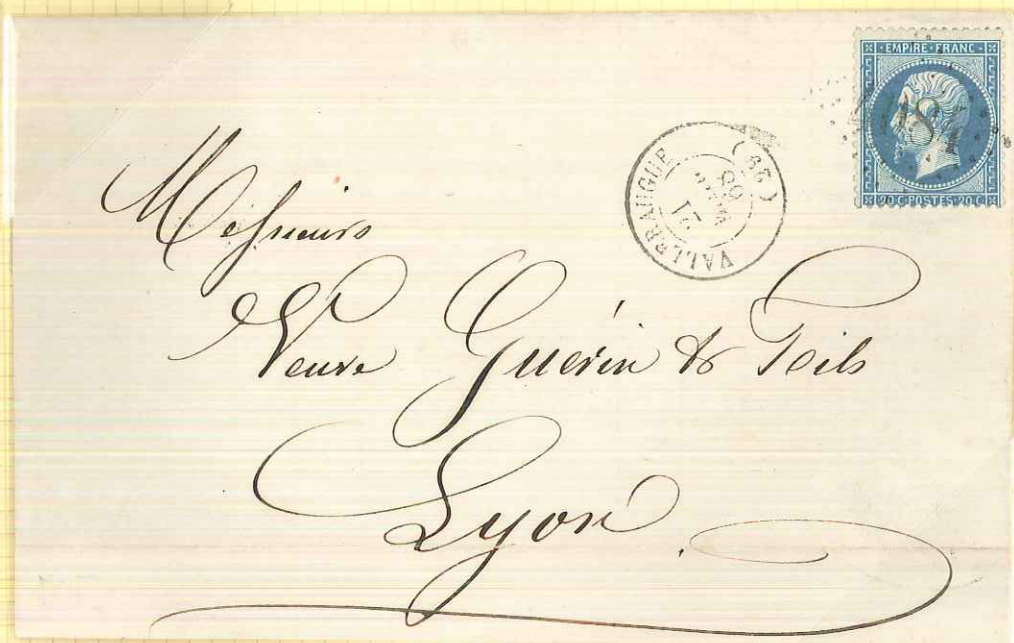 EMPIRE·FRANC·
4081
20 C POSTES 20 C
VALLERAUGUE
(29)
21
68
Messieurs
Veuve Guérin & Fils
Lyon